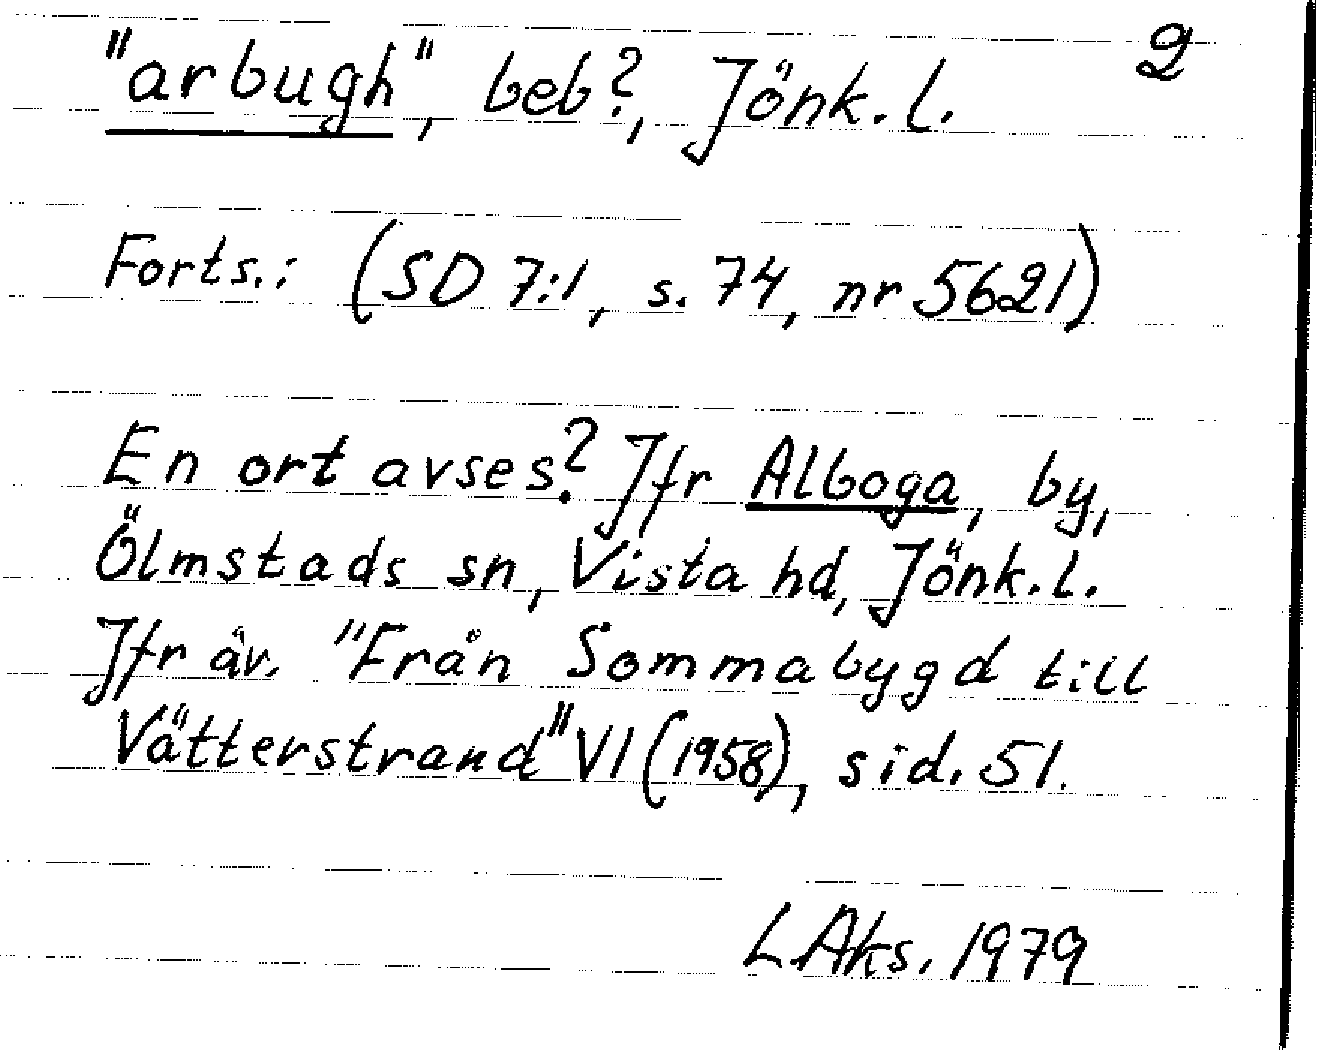 "arbugh", beb?, Jönk. l. 2
Forts.: (SD 7:1, s. 74, nr 5621)
En ort avses? Jfr Alboga, by,
Ölmstads sn, Vista hd, Jönk. l.
Jfr äv. "Från Sommabygd till
Vätterstrand" VI (1958), sid. 51.
L.Aks. 1979